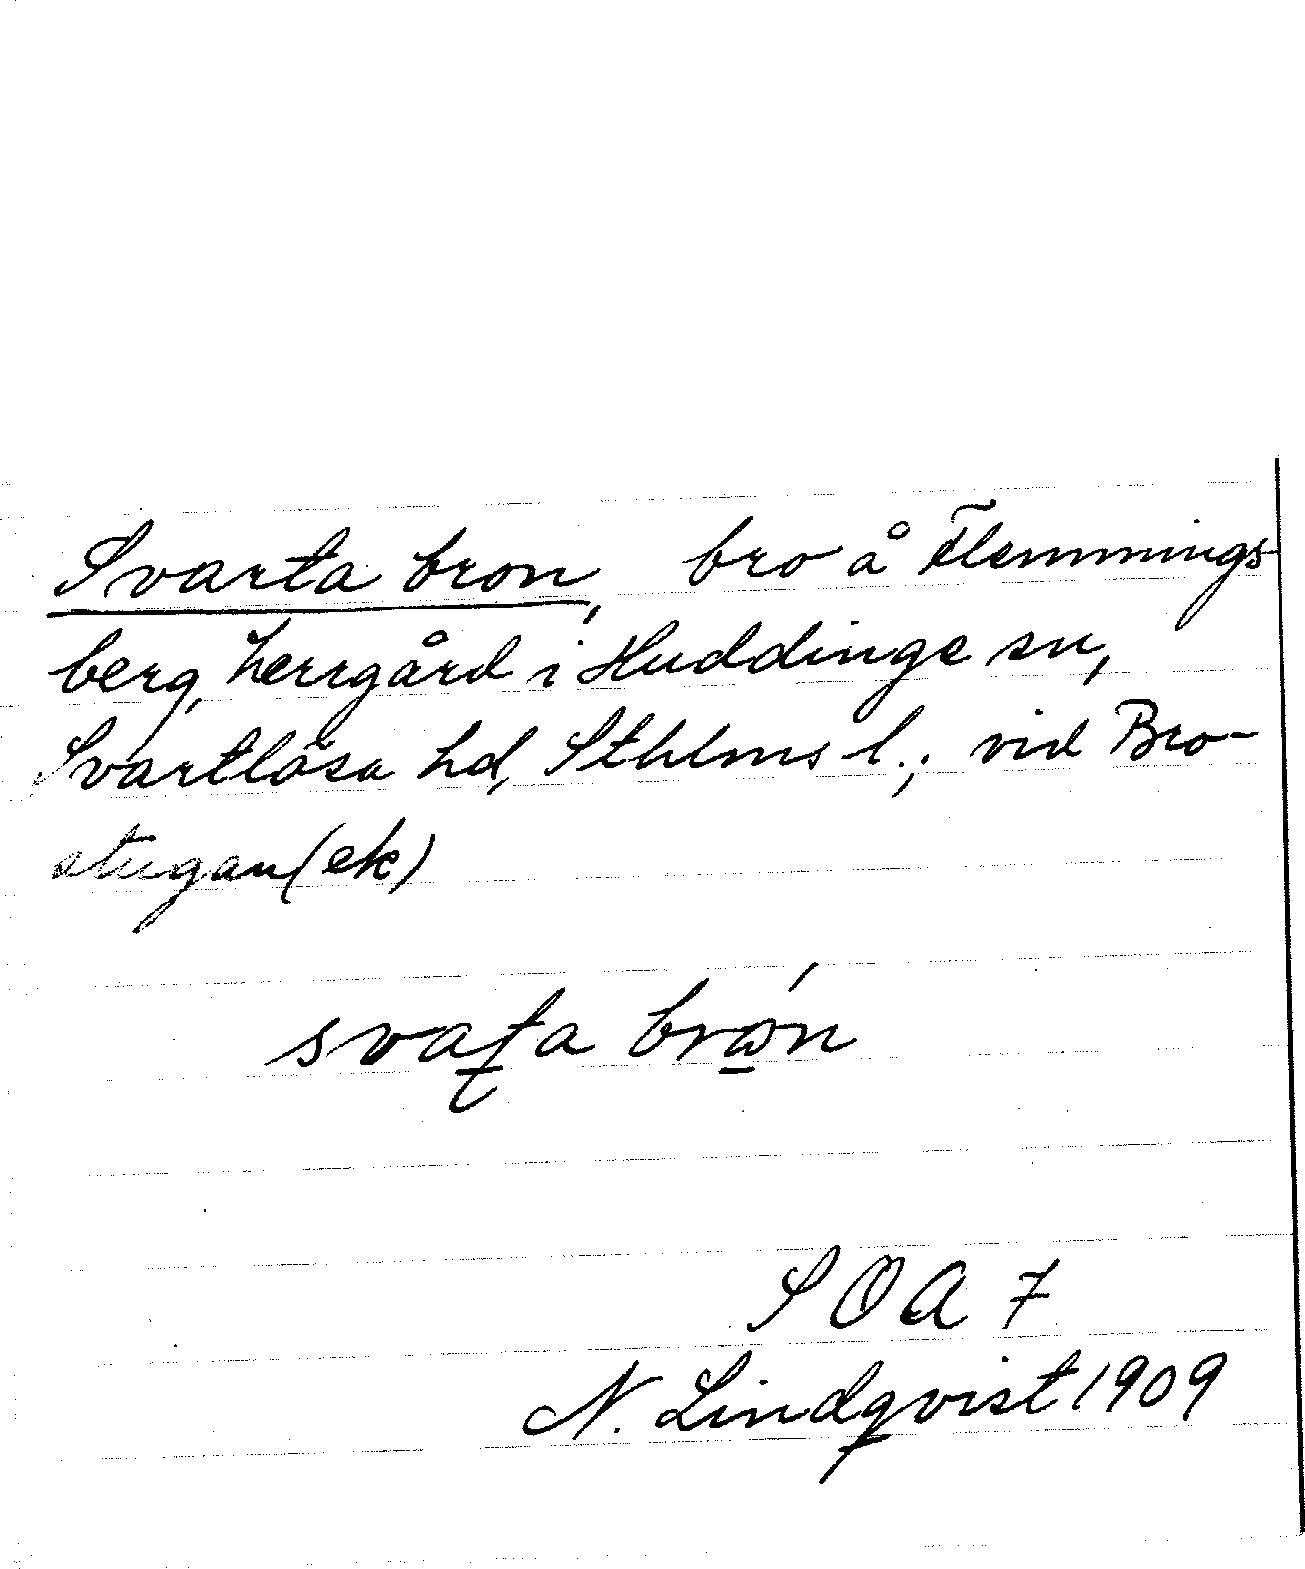 Svarta bron, bro å Flemmings-
berg, herrgård i Huddinge sn,
Svartlösa hd, Sthlms l.; vid Bro-
stugan (ek)
svaʈa brɷ́n
SOA 7
N. Lindqvist 1909